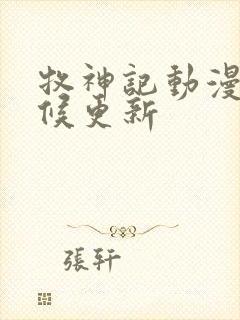 牧神記動漫
候更新
張軒